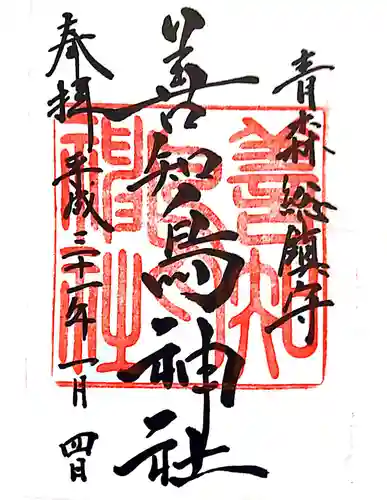 青森総鎮守
善知鳥神社
奉拝
平成三十一年一月四日
善知鳥神社